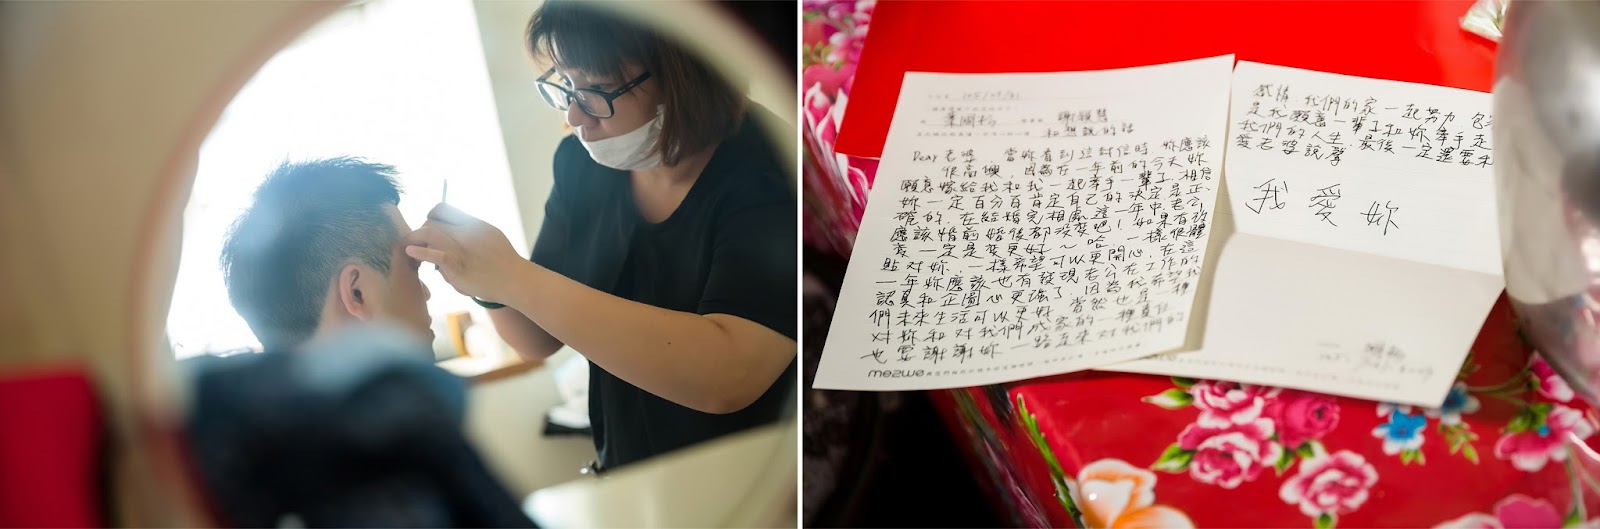 105/09/21
和想說的話
Dear 老婆. 當妳看到這封信時 妳應該
很高興, 因為在一年前的今天 妳
願意嫁給我和我一起牽手一輩子, 相信
妳一定百分百肯定自己的決定是正
確的. 在結婚完相處這一年中, 老公
應該婚前婚後都沒變吧! 如果有改
變一定是變更好~哈. 一樣很體
貼對妳. 一樣希望可以更開心. 在這
一年妳應該也有發現老公在工作的
認真和企圖心更強了, 因為我希望我
們未來生活可以更好. 當然也是一種
對妳和對我們成家的一種責任
也要謝謝妳一路走來對我們的
me2we
感情. 我們的家一起努力
是我願意一輩子和妳牽手走
我們的人生. 最後一定還要
愛老婆說聲
我愛妳